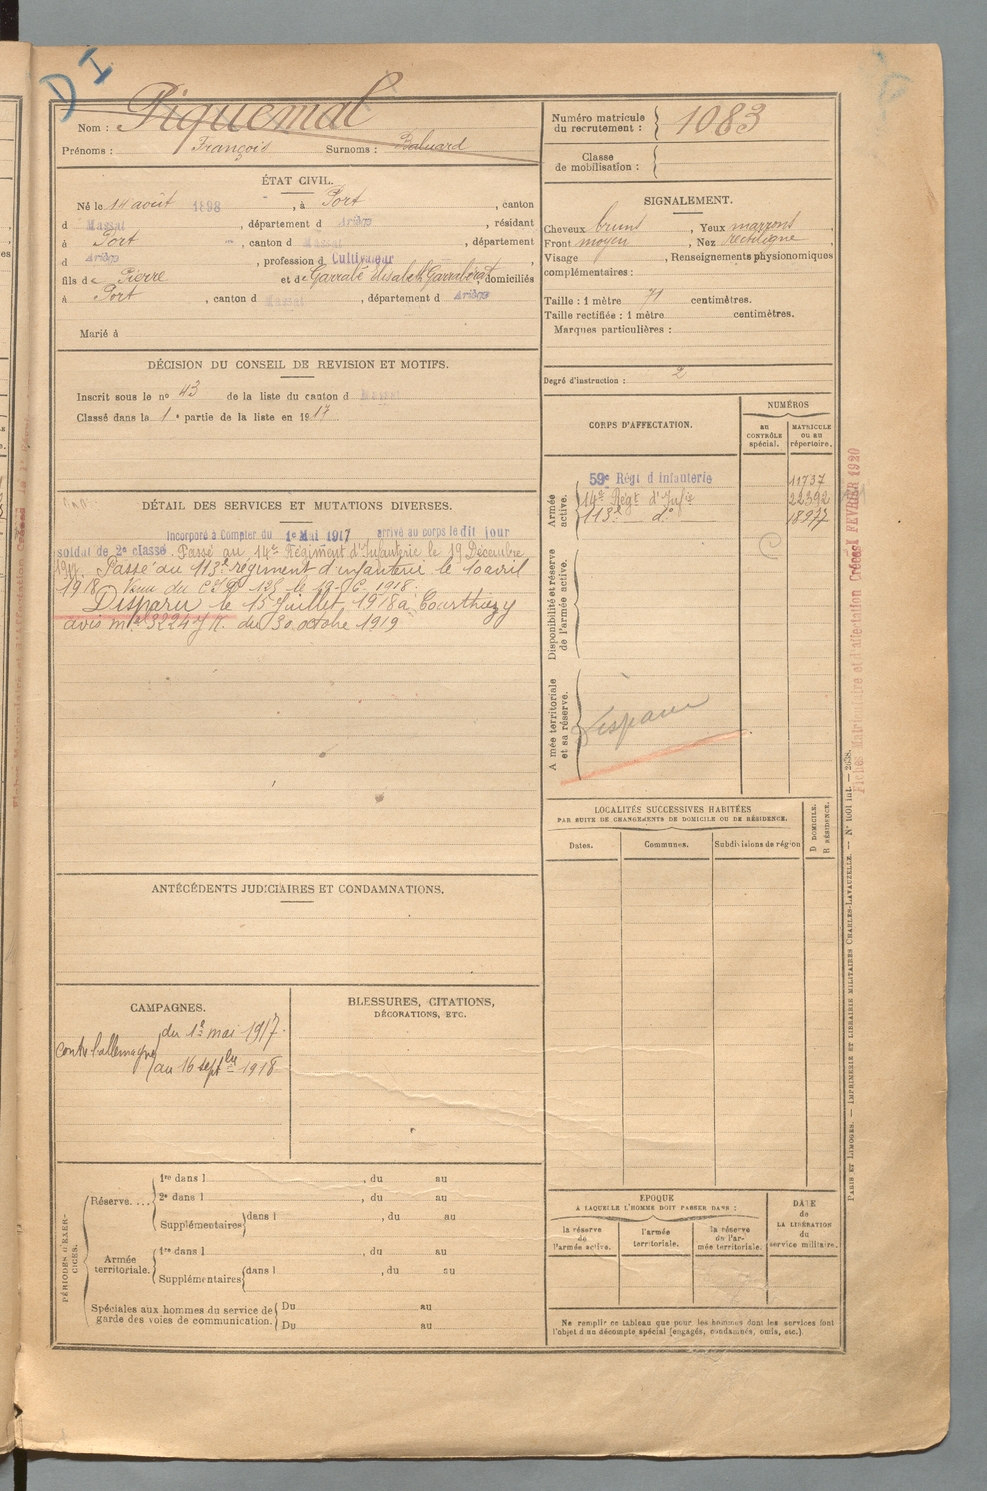 D I
Nom : Piquemal
Prénoms : François Surnoms : Baluard
Numéro matricule
du recrutement : 1083
Classe
de mobilisation :
ÉTAT CIVIL.
Né le 14 août 1898, à Port, canton
d Massat, département d Ariège, résidant
à Port, canton d Massat, département
d Ariège, profession d Cultivateur
fils de Pierre et de Garrabé Elisabeth, domiciliés
à Port, canton d Massat, département d Ariège
Marié à
SIGNALEMENT.
Cheveux bruns, Yeux marrons,
Front moyen, Nez rectiligne,
Visage, Renseignements physionomiques
complémentaires :
Taille : 1 mètre 71 centimètres.
Taille rectifiée : 1 mètre centimètres.
Marques particulières :
Degré d'instruction : 2
DÉCISION DU CONSEIL DE REVISION ET MOTIFS.
Inscrit sous le no 43 de la liste du canton d Massat
Classé dans la 1e partie de la liste en 1917
CORPS D'AFFECTATION.
NUMÉROS
au
CONTRÔLE
spécial.
MATRICULE
ou au
répertoire.
Armée
active.
59e Régt d'infanterie 11737
14e Régt d'Infie 22392
113e do 18977
Disponibilité et réserve
de l'armée active.
Armée territoriale
et sa réserve.
Disparu
DÉTAIL DES SERVICES ET MUTATIONS DIVERSES.
Incorporé à Compter du 1e Mai 1917 arrivé au corps le dit jour
soldat de 2e classe. Passé au 14e Régiment d'Infanterie le 19 Décembre
1917. Passé au 113e régiment d'infanterie le 10 avril
1918.
Disparu le 15 Juillet 1918 à Courthiézy
avis du 30 octobre 1919
LOCALITÉS SUCCESSIVES HABITÉES
PAR SUITE DE CHANGEMENTS DE DOMICILE OU DE RÉSIDENCE.
Dates. Communes. Subdivisions de région
D DOMICILE.
R RÉSIDENCE.
ANTÉCÉDENTS JUDICIAIRES ET CONDAMNATIONS.
CAMPAGNES.
contre l'allemagne du 1er mai 1917
au 16 septbre 1918
BLESSURES, CITATIONS,
DÉCORATIONS, ETC.
PÉRIODES D'EXER-
CICES.
Réserve....
1re dans l , du au
2e dans l , du au
Supplémentaires dans l , du au
Armée
territoriale.
1re dans l , du au
Supplémentaires dans l , du au
Spéciales aux hommes du service de
garde des voies de communication.
Du au
Du au
ÉPOQUE
A LAQUELLE L'HOMME DOIT PASSER DANS :
la réserve
de
l'armée active.
l'armée
territoriale.
la réserve
de l'ar-
mée territoriale.
DATE
de
LA LIBÉRATION
du
service militaire.
Ne remplir ce tableau que pour les hommes dont les services font
l'objet d'un décompte spécial (engagés, condamnés, omis, etc.)
Fiches Matriculaire et d'affectation Créées 1 FEVRIER 1920
PARIS ET LIMOGES. — IMPRIMERIE ET LIBRAIRIE MILITAIRES CHARLES-LAVAUZELLE. — N° 1001 int. — 2638.